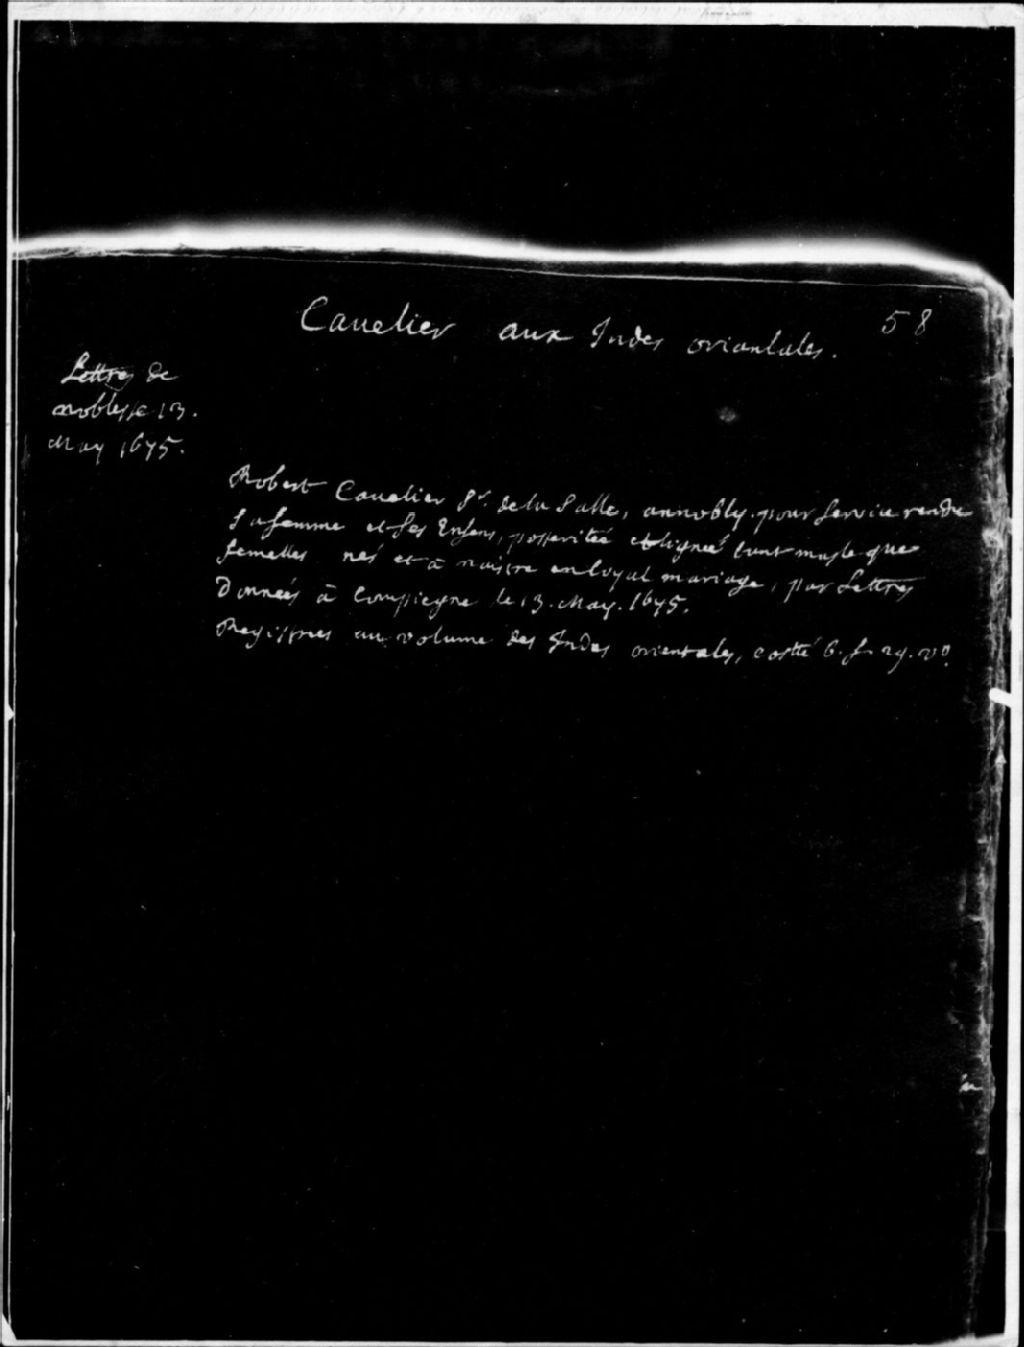 58
Cauelier aux Indes oriantales.
Lettres de
noblesse 13.
May 1675.
Robert Cauelier Sr. de la Salle, annobly pour service rendu
sa femme et ses Enfans, posterité et lignée tant masle que
femelles nés et à naistre en loyal mariage, par Lettres
Données à Compiegne le 13. May. 1675.
Registrées au volume des Indes orientales, costé 6. f. 29. vo.